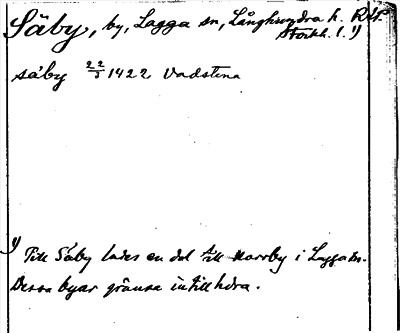 Säby, by, Lagga sn, Långhundra h.
Stockh. l. 1)
säby 22/5 1422 Vadstena
1) Till Säby lades en del till Norrby i Lagga sn.
Dessa byar gränsa intill hdra.